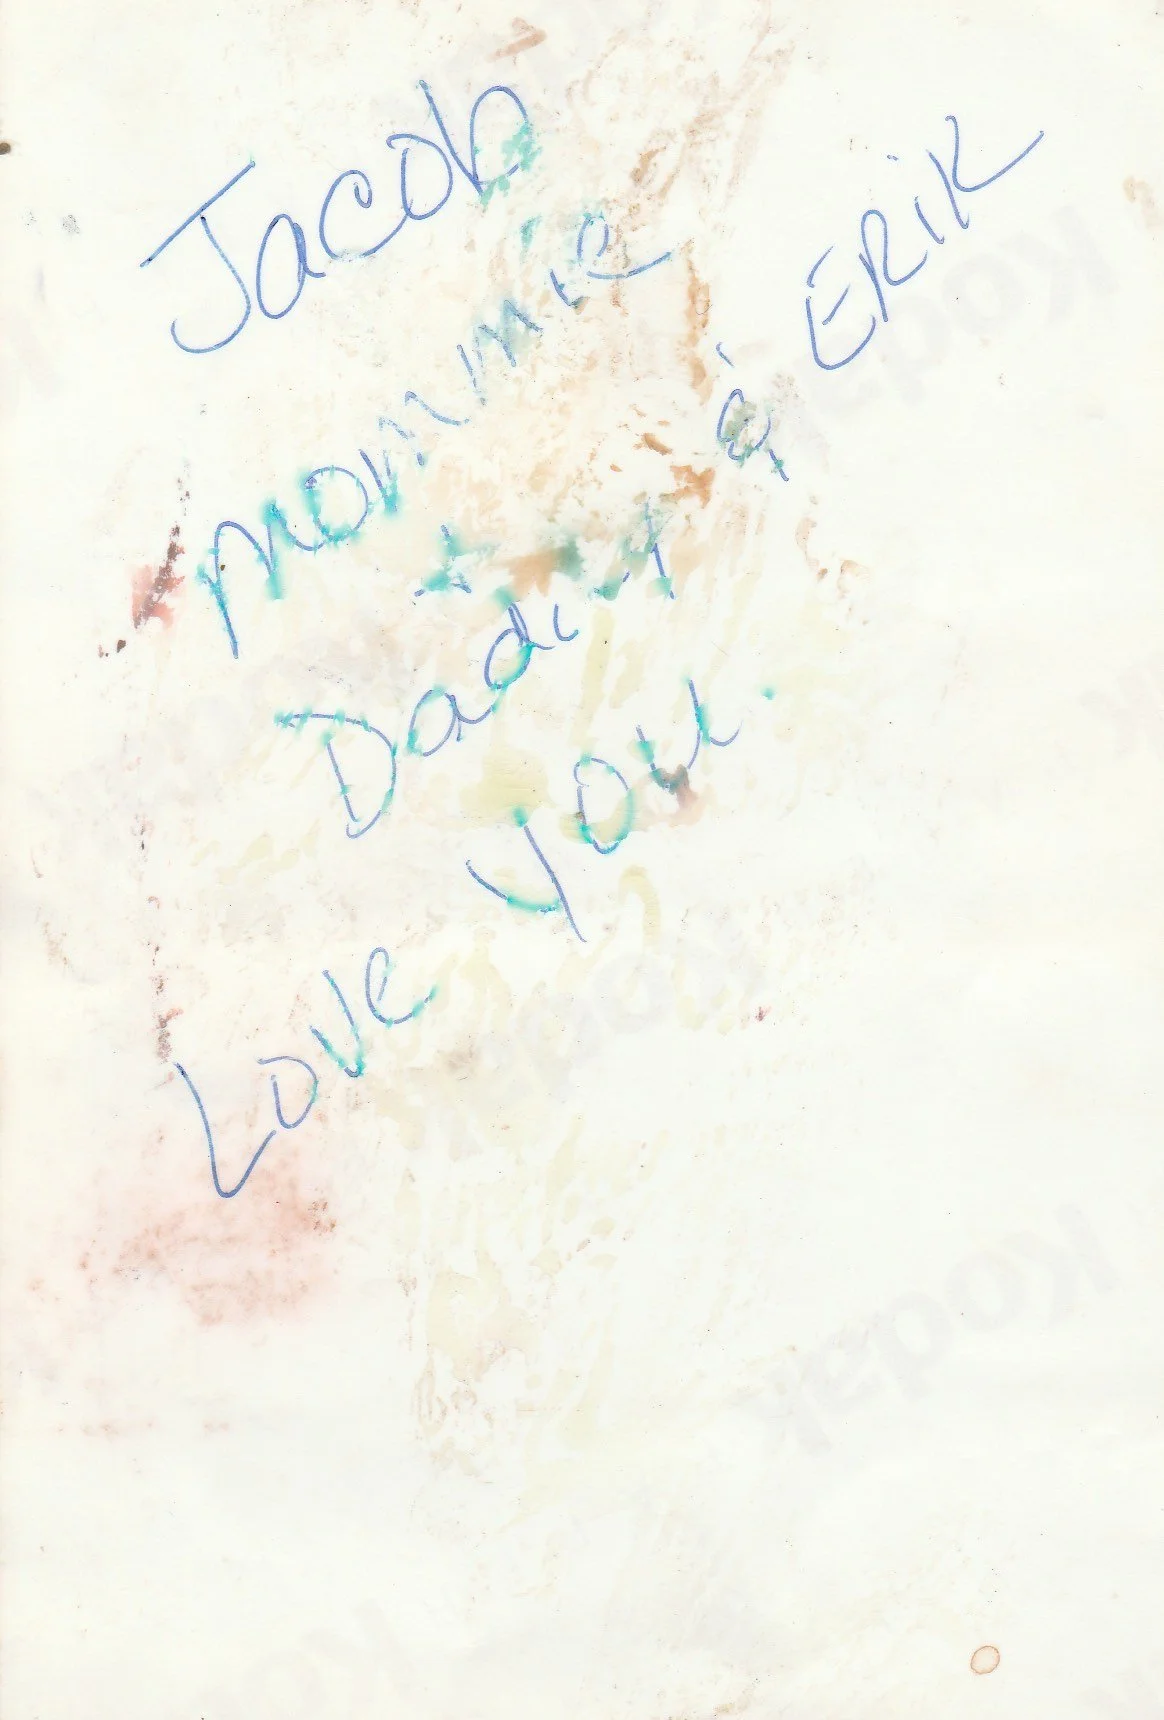 Jacob
Mommie
+ Daddy & ERiK
Love you.
Kodak
Kodak
Kodak